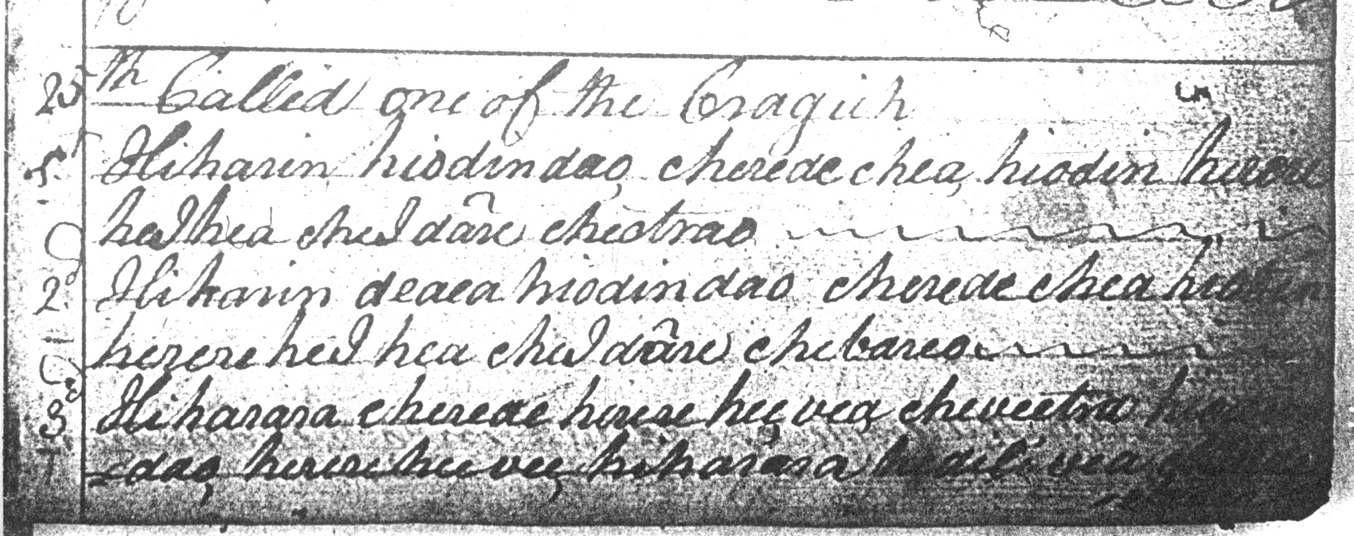 25th Called one of the Cragich
Hiharin hiodindao, cherede chea, hiodin hirere
hedhea ched dâre cheotrao
2d Hiharin deaea hiodindao cherede chea hiodin
herere hed hea ched dâre chebareo
3d Hiharara cherede herere hee, vea, cheveetrao
dao, herere hee vee, hiharara vea